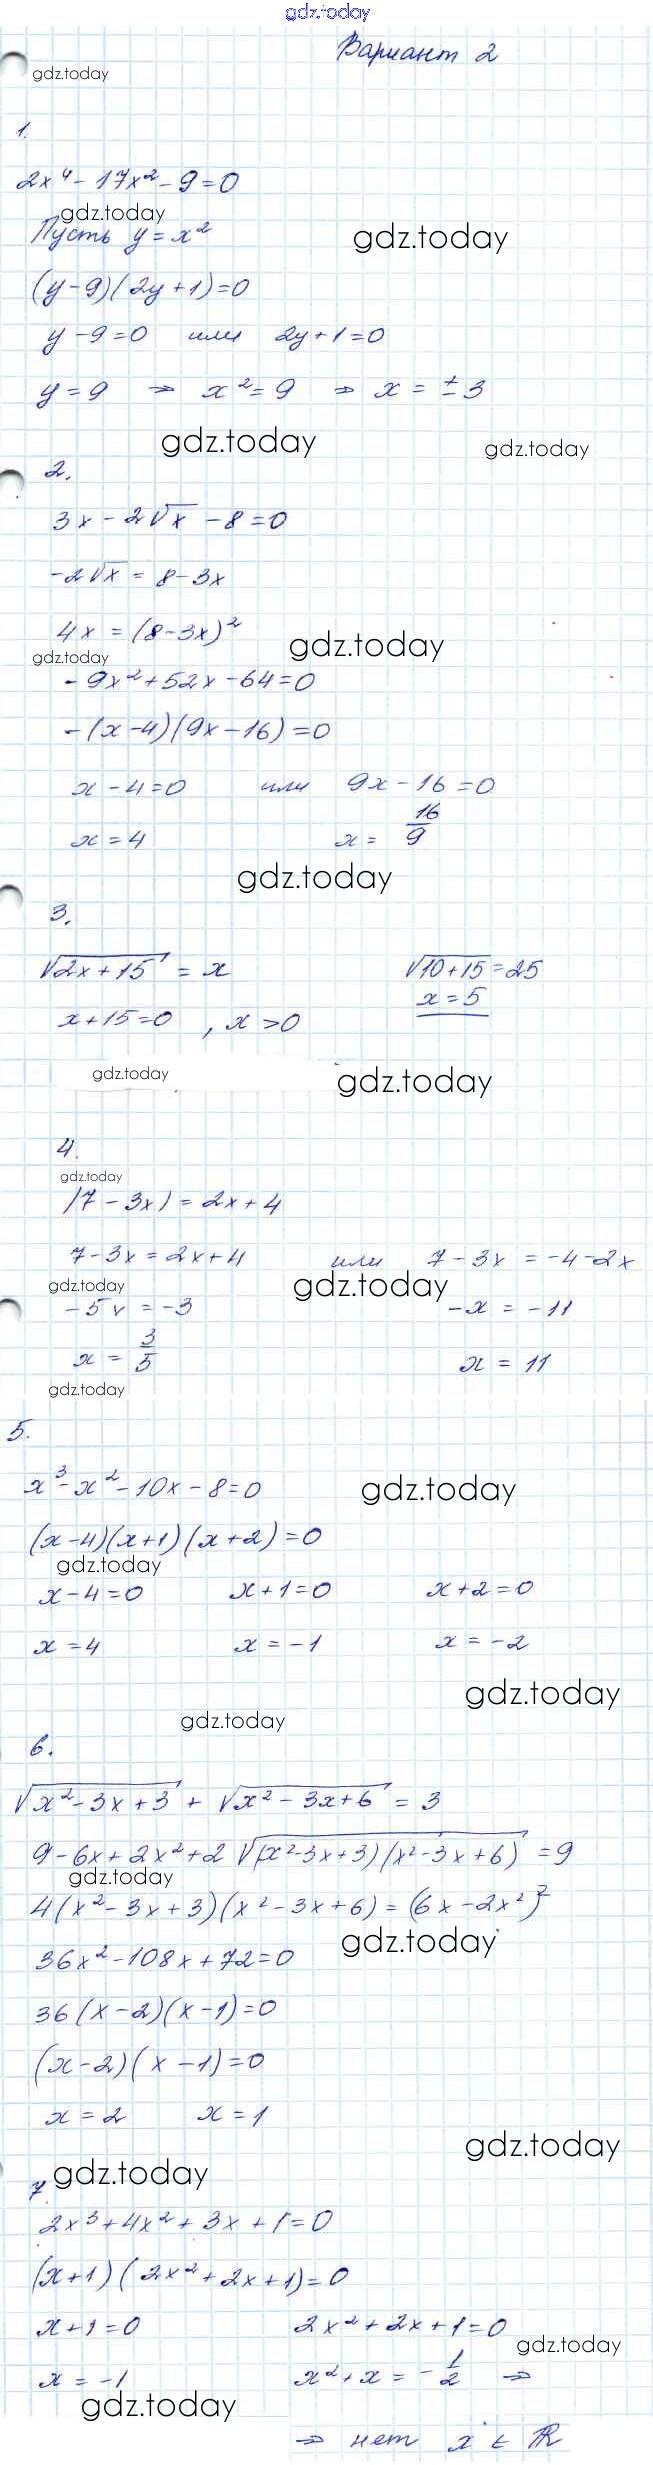 gdz.today
Вариант 2
gdz.today
1.
2x⁴ - 17x² - 9 = 0
gdz.today
Пусть y = x²
gdz.today
(y - 9)(2y + 1) = 0
y - 9 = 0 или 2y + 1 = 0
y = 9 ⇒ x² = 9 ⇒ x = ± 3
gdz.today
gdz.today
2.
3x - 2√x - 8 = 0
-2√x = 8 - 3x
4x = (8 - 3x)²
gdz.today
gdz.today
- 9x² + 52x - 64 = 0
- (x - 4)(9x - 16) = 0
x - 4 = 0 или 9x - 16 = 0
x = 4 x = 16/9
gdz.today
3.
√(2x + 15) = x √(10 + 15) = 25
x + 15 = 0 , x > 0 x = 5
gdz.today
gdz.today
4.
gdz.today
|7 - 3x| = 2x + 4
7 - 3x = 2x + 4 или 7 - 3x = -4 - 2x
gdz.today
gdz.today
- 5x = -3 -x = -11
x = 3/5 x = 11
gdz.today
5.
x³ - x² - 10x - 8 = 0
gdz.today
(x - 4)(x + 1)(x + 2) = 0
gdz.today
x - 4 = 0 x + 1 = 0 x + 2 = 0
x = 4 x = -1 x = -2
gdz.today
gdz.today
6.
√(x² - 3x + 3) + √(x² - 3x + 6) = 3
9 - 6x + 2x² + 2√((x² - 3x + 3)(x² - 3x + 6)) = 9
gdz.today
4(x² - 3x + 3)(x² - 3x + 6) = (6x - 2x²)²
gdz.today
36x² - 108x + 72 = 0
36(x - 2)(x - 1) = 0
(x - 2)(x - 1) = 0
x = 2 x = 1
gdz.today
gdz.today
7
2x³ + 4x² + 3x + 1 = 0
(x + 1)(2x² + 2x + 1) = 0
x + 1 = 0 2x² + 2x + 1 = 0
gdz.today
x = -1 x² + x = - 1/2 ⇒
gdz.today
⇒ нет x ∈ ℝ